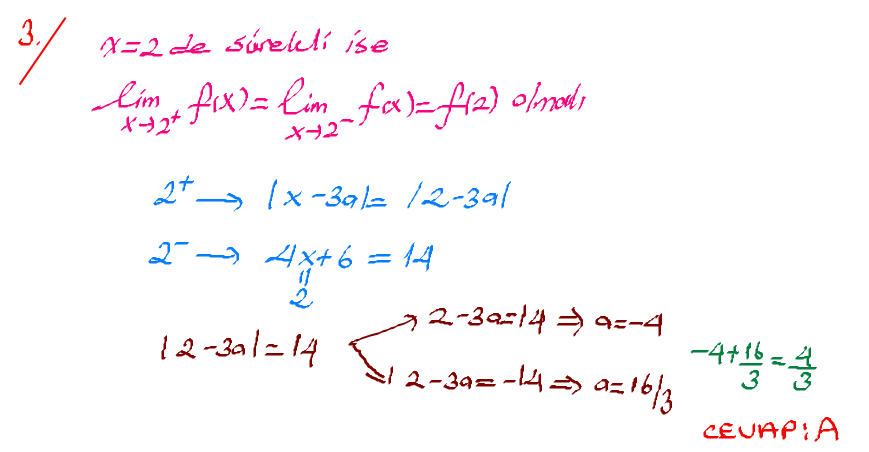 3.
x=2 de sürekli ise
lim x→2⁺ f(x) = lim x→2⁻ f(x) = f(2) olmalı
2⁺ → |x-3a| = |2-3a|
2⁻ → 4x+6 = 14
"
2
|2-3a| = 14
2-3a=14 ⇒ a=-4
2-3a=-14 ⇒ a=16/3
-4+16/3=4/3
CEVAP: A